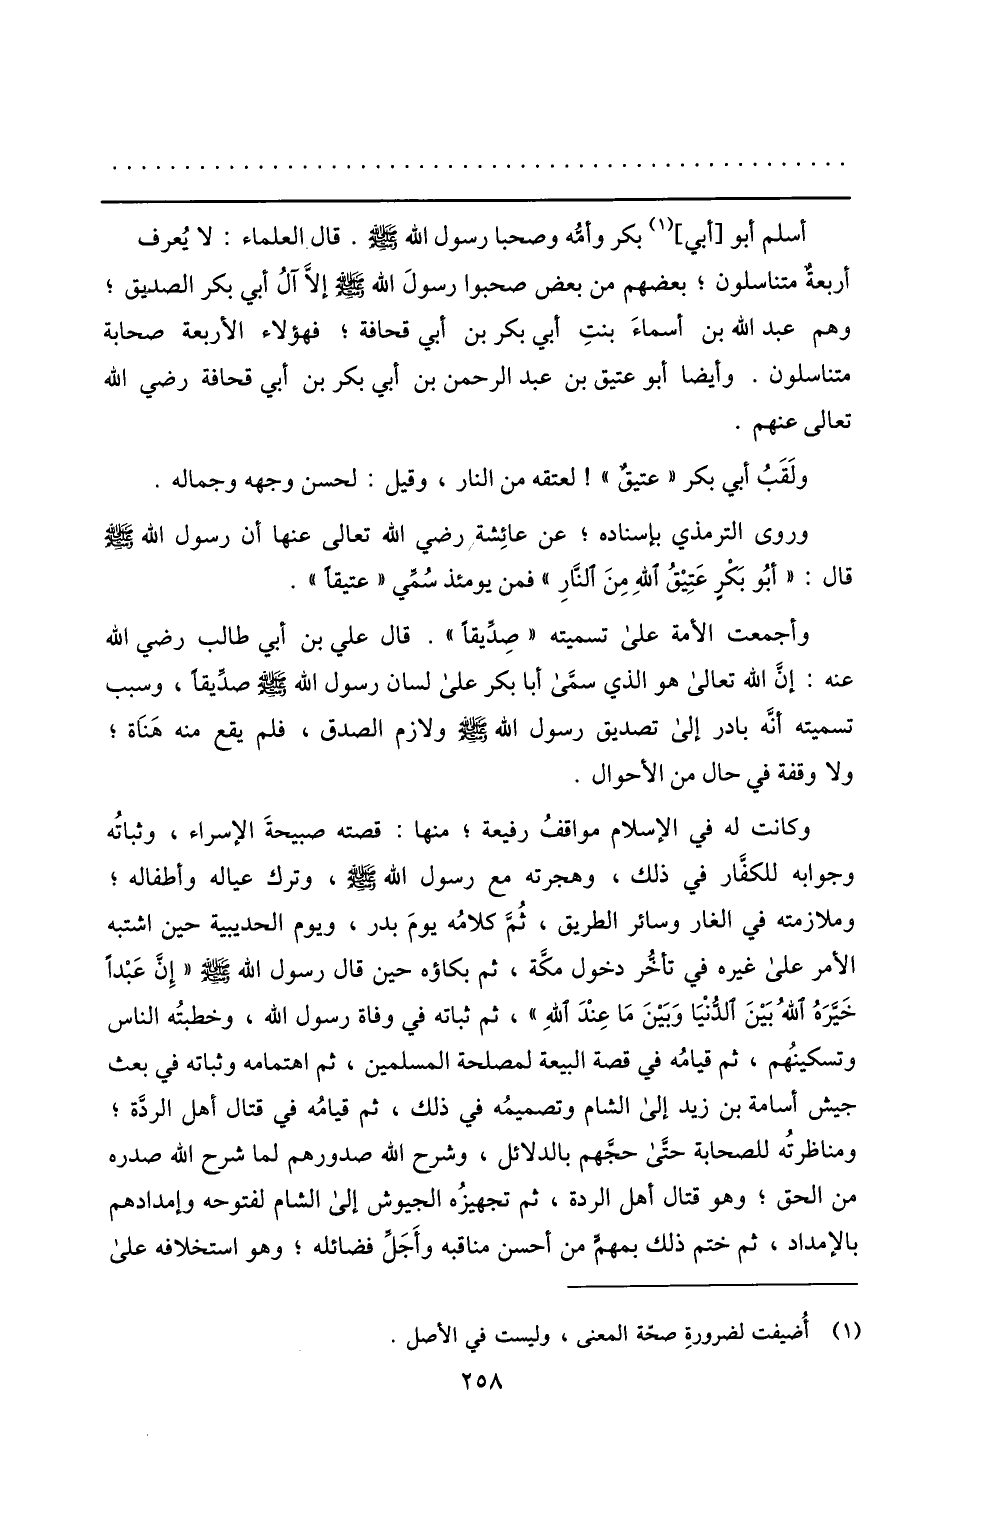 أسلم أبو [أبي](١) بكر وأمُّه وصحبا رسول الله ﷺ . قال العلماء : لا يُعرف
أربعةٌ متناسلون ؛ بعضهم من بعض صحبوا رسولَ الله ﷺ إلاَّ آلُ أبي بكر الصديق ؛
وهم عبد الله بن أسماءَ بنتِ أبي بكر بن أبي قحافة ؛ فهؤلاء الأربعة صحابة
متناسلون . وأيضا أبو عتيق بن عبد الرحمن بن أبي بكر بن أبي قحافة رضي الله
تعالى عنهم .
ولَقَبُ أبي بكر « عتيقٌ » ! لعتقه من النار ، وقيل : لحسن وجهه وجماله .
وروى الترمذي بإسناده ؛ عن عائِشة رضي الله تعالى عنها أن رسول الله ﷺ
قال : « أَبُو بَكْرٍ عَتِيْقُ ٱللهِ مِنَ ٱلنَّارِ » فمن يومئذ سُمِّي « عتيقاً » .
وأجمعت الأمة علىٰ تسميته « صِدِّيقاً » . قال علي بن أبي طالب رضي الله
عنه : إنَّ الله تعالىٰ هو الذي سمَّىٰ أبا بكر علىٰ لسان رسول الله ﷺ صدِّيقاً ، وسبب
تسميته أنَّه بادر إلىٰ تصديق رسول الله ﷺ ولازم الصدق ، فلم يقع منه هَنَاة ؛
ولا وقفة في حال من الأحوال .
وكانت له في الإسلام مواقفُ رفيعة ؛ منها : قصته صبيحةَ الإسراء ، وثباتُه
وجوابه للكفَّار في ذلك ، وهجرته مع رسول الله ﷺ ، وترك عياله وأطفاله ؛
وملازمته في الغار وسائر الطريق ، ثُمَّ كلامُه يومَ بدر ، ويوم الحديبية حين اشتبه
الأمر علىٰ غيره في تأخُّر دخول مكَّة ، ثم بكاؤه حين قال رسول الله ﷺ « إِنَّ عَبْداً
خَيَّرَهُ ٱللهُ بَيْنَ ٱلدُّنْيَا وَبَيْنَ مَا عِنْدَ ٱللهِ » ، ثم ثباته في وفاة رسول الله ، وخطبتُه الناس
وتسكينُهم ، ثم قيامُه في قصة البيعة لمصلحة المسلمين ، ثم اهتمامه وثباته في بعث
جيش أسامة بن زيد إلىٰ الشام وتصميمُه في ذلك ، ثم قيامُه في قتال أهل الردَّة ؛
ومناظرتُه للصحابة حتَّىٰ حجَّهم بالدلائل ، وشرح الله صدورهم لما شرح الله صدره
من الحق ؛ وهو قتال أهل الردة ، ثم تجهيزُه الجيوش إلىٰ الشام لفتوحه وإمدادهم
بالإمداد ، ثم ختم ذلك بمهمٍّ من أحسن مناقبه وأَجَلِّ فضائله ؛ وهو استخلافه علىٰ
(١) أُضيفت لضرورةِ صحّة المعنى ، وليست في الأصل .
٢٥٨